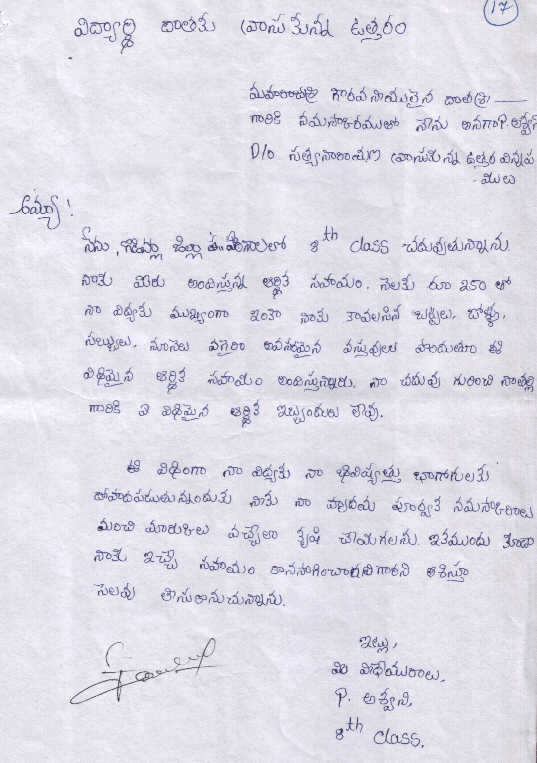 17
విద్యార్థి దాతకు వ్రాసుకున్న ఉత్తరం
మహారాజశ్రీ గౌరవనీయులైన దాతశ్రీ ——
గారికి నమస్కారములతో నేను అనగా P. అశ్విని
D/o సత్యనారాయణ వ్రాసుకున్న ఉత్తర విన్నప
- ములు
అమ్మా!
నేను, జిల్లా పరిషత్ లో 8th class చదువుతున్నాను
నాకు మీరు అందిస్తున్న ఆర్థిక సహాయం. నెలకు రూ 250 లో
నా విద్యకు ముఖ్యంగా ఇంకా నాకు కావలసిన బట్టలు, బోళ్ళు,
సబ్బులు, నూనెలు వగైరా అవసరమైన వస్తువులు పొందుతూ ఈ
విధమైన ఆర్థిక సహాయం అందిస్తున్నారు. నా చదువు గురించి నాతల్లి
గారికి ఏ విధమైన ఆర్థిక ఇబ్బందులు లేవు.
ఈ విధంగా నా విద్యకు నా భవిష్యత్తు బాగోగులకు
దోహదపడుతున్నందుకు నాకు నా హృదయ పూర్వక నమస్కారాలు
మంచి మార్కులు వచ్చేలా కృషి చేయగలను. ఇకముందు కూడా
నాకు ఇచ్చే సహాయం కొనసాగించగలరని ఆశిస్తూ
సెలవు తీసుకొనుచున్నాను.
ఇట్లు,
మీ విధేయురాలు,
P. అశ్విని,
8th class.